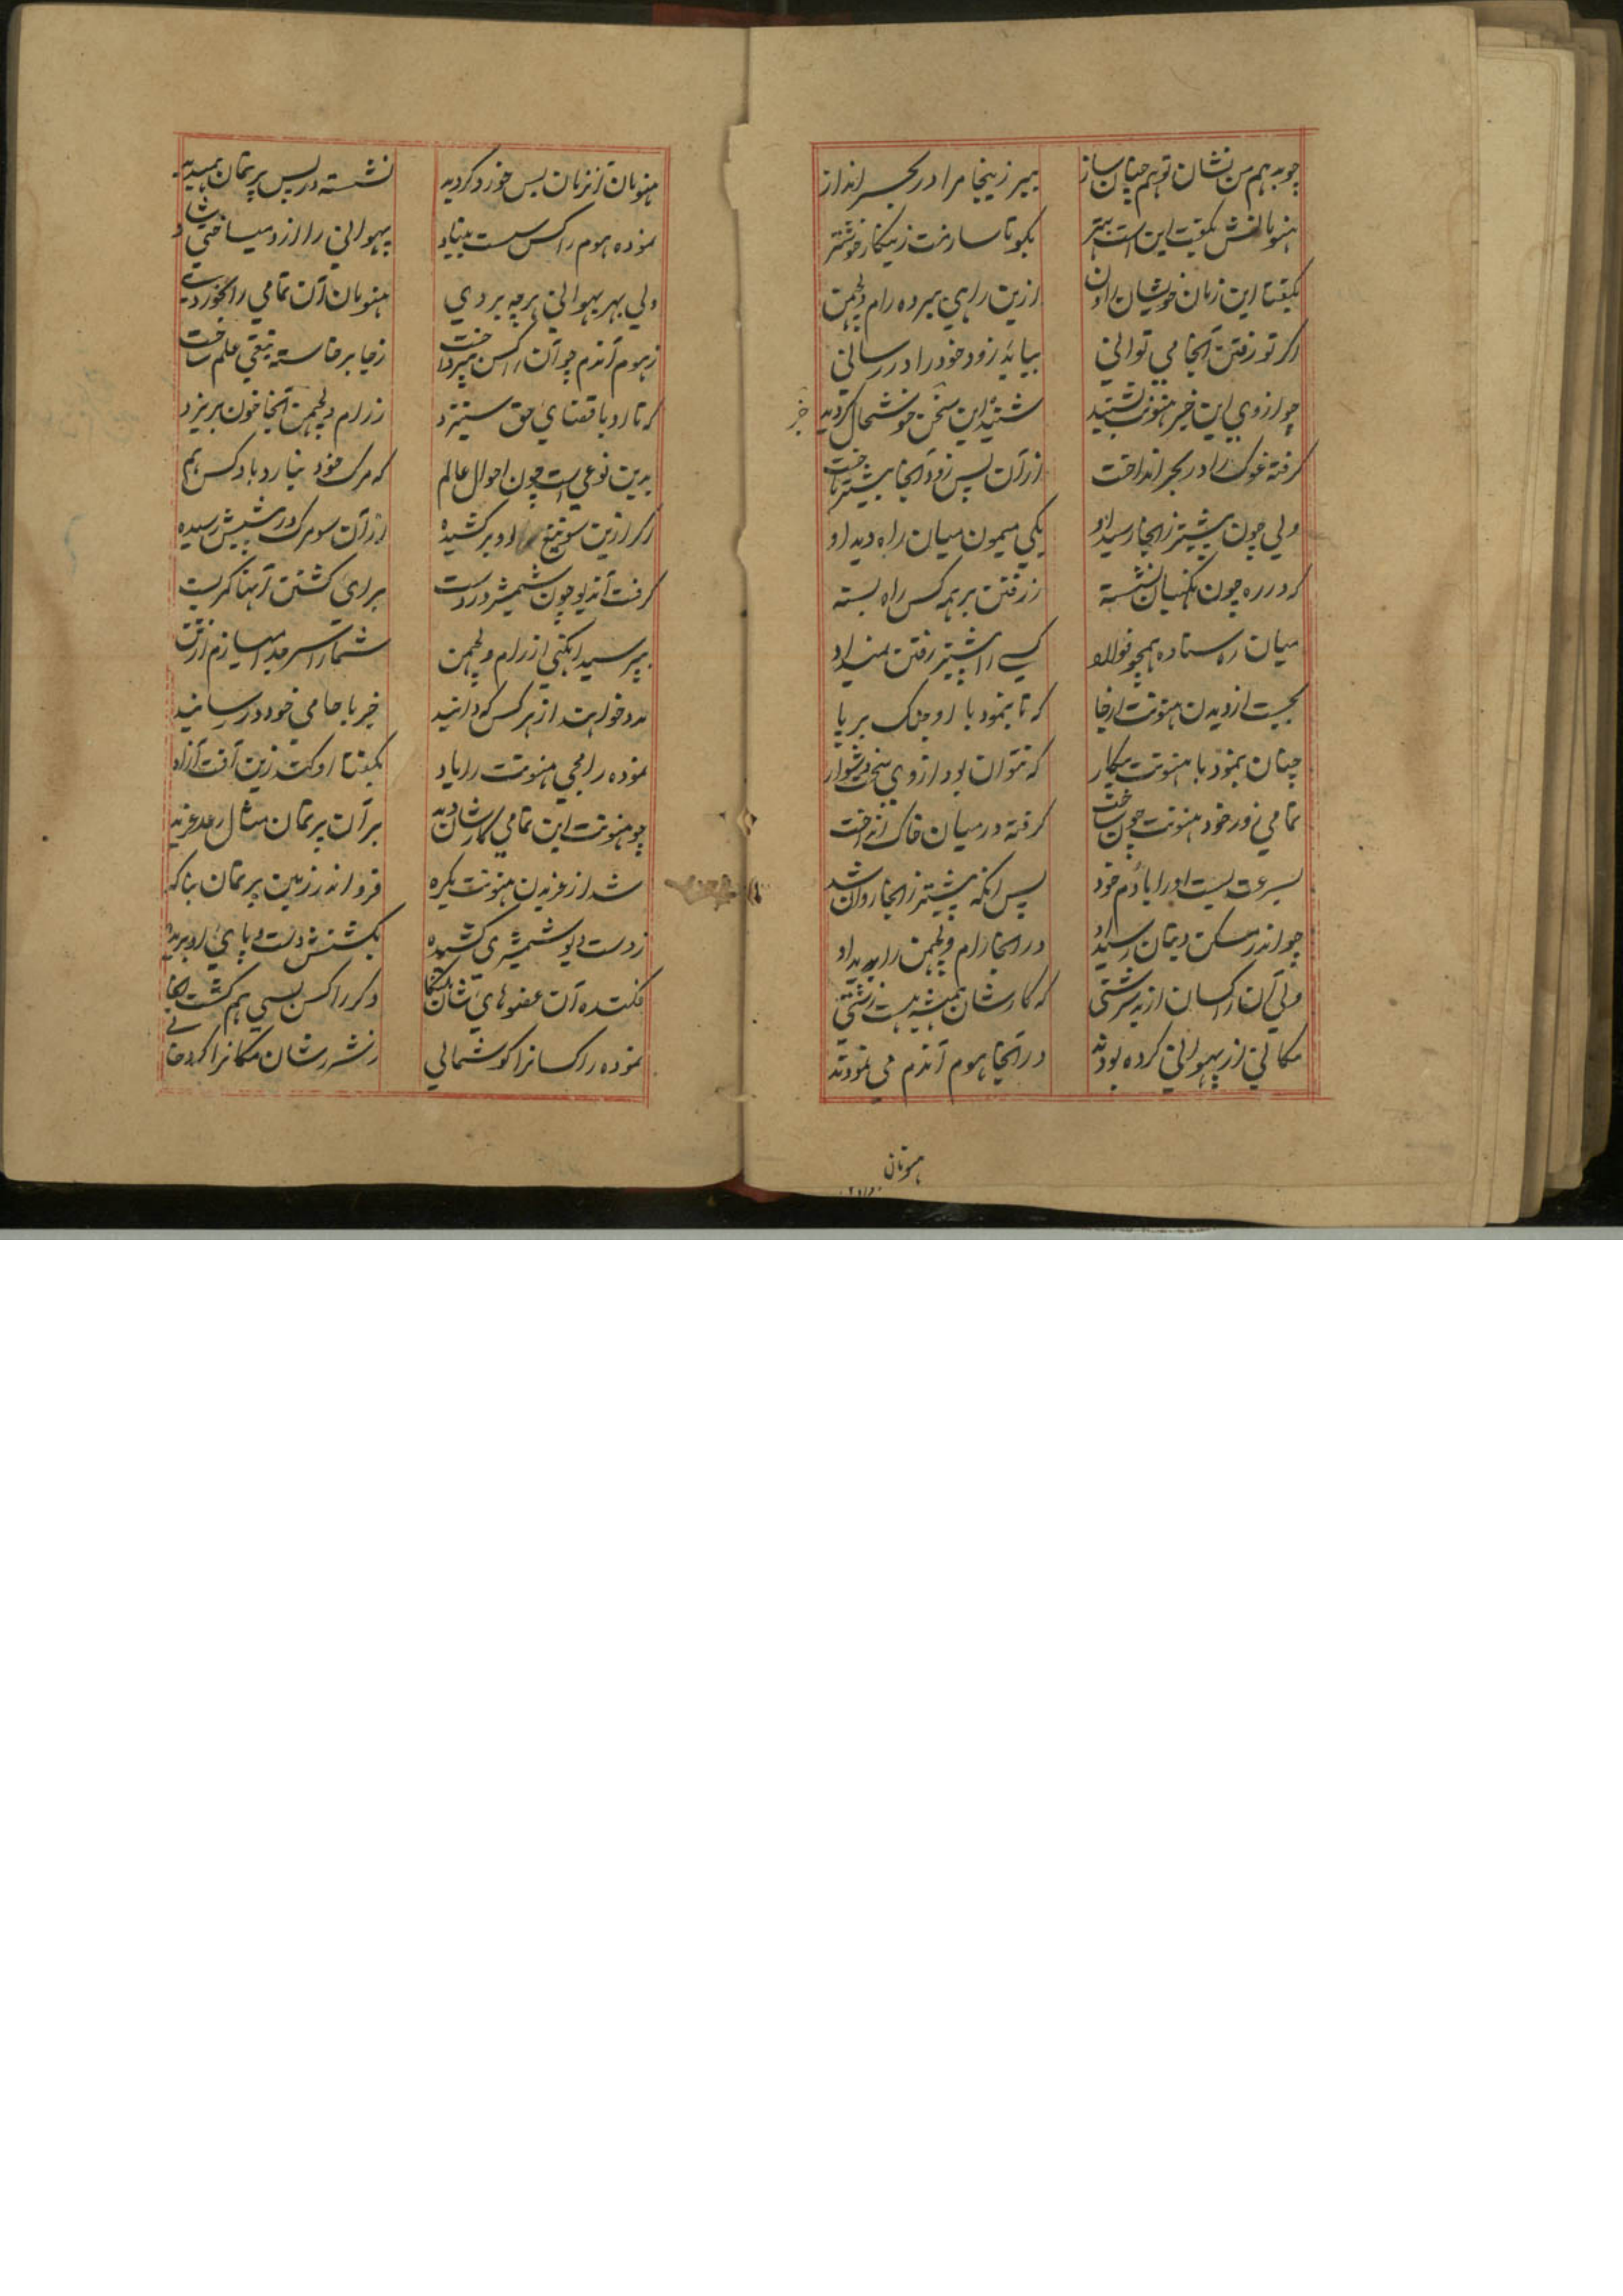 چو بد هم من نشان تو هم چنان ساز ببر زینجا مرا در بحر انداز
هنومانش بگفت این است بهتر بکو تا سازمت زینکار خوشتر
بگفتا این زمان خویشان از راون ازین راهی ببرده رام و لچمن
اگر تو رفتن آنجا می توانی بباید زود خود را در رسانی
چو از وی این خبر هنونت بشنید شنید این سخن خوشحال گردید
گرفته غوک را در بحر انداخت از آن پس زود آنجا پیشتر تاخت
ولی چون پیشتر زانجا رسید او یکی میمون میان راه دید او
که در ره چون نگهبان نشسته ز رفتن بر همه کس راه بسته
میان ره ستاده همچو فولاد کسی را پیشتر رفتن نمیداد
بجست از دیدن هنونت از جا که تا بنمود با او جنگ بر پا
چنان بنمود با هنونت پیکار که نتوان بود از وی سخت دشوار
تمامی زور خود هنونت چون ساخت گرفته در میان خاک انداخت
بسرعت بست او را با دم خود پس آنکه پیشتر زانجا روان شد
چو اندر مسکن دیوان رسید او در آنجا رام و لچمن را بدید او
ولی آن راکسان از بد سرشتی که کارشان همیشه هست زشتی
مکانی از پهوانی کرده بودند در آنجا هوم آندم می نمودند
هنومان
هنومان آنزمان بس خورد گردید نشسته در پس پرتمان همیدید
نموده هوم راکس بست بنیاد پهوانی را از و میساختی شاد
ولی بهر پهوانی هرچه بردی هنومان آن تمامی را بخوردی
ز هوم آندم چو آن راکس بپرداخت ز جا برخاسته تیغی علم ساخت
که تا او با قضای حق ستیزد ز رام و لچمن آنجا خون بریزد
بدین نوعی است چون احوال عالم که مرک خود نیارد یاد کس هم
اگر ازین سو تیغ او بر کشیده از آن سو مرک در پیشش رسیده
گرفت آندیو چون شمشیر در دست برای کشتن آنها کمر بست
بپرسید آنگهی از رام و لچمن شما را سر جدا میسازم از تن
مدد خواهید از هر کس که دانید خبر با حامی خود در رسانید
نموده رامجی هنونت را یاد بگفتا او کند زین آفت آزاد
چو هنونت این تمامی کارشان دید بر آن پرتمان مثال رعد غرید
شد از غریدن هنونت یکره فرو اندر زمین پرتمان بناکه
ز دست دیو شمشیری کشیده بکشتش دست و پای او بریده
فکنده آن عضوهای شان دکر راکس بسی هم کشت آنجا
نموده راکسانرا گوشمالی ز نشر شان مکانرا کرد خالی